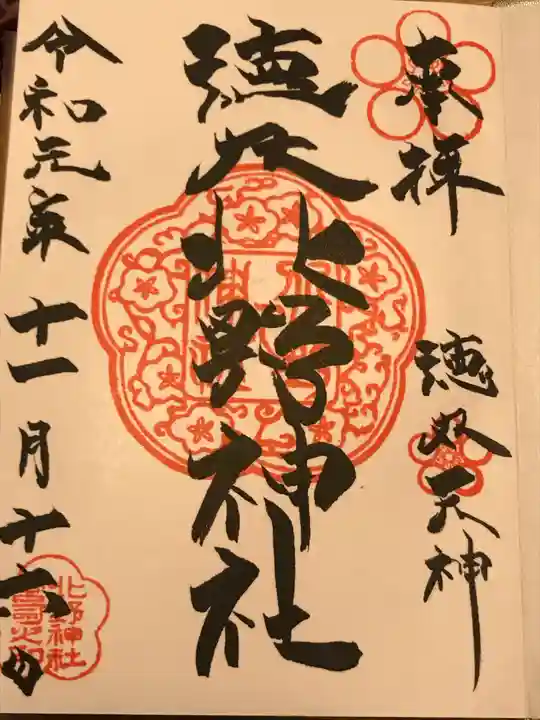 奉拝
徳丸天神
徳丸北野神社
令和元年十一月十六日
北野神社